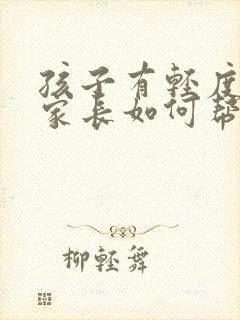 孩子有轻度
家长如何帮
柳轻舞